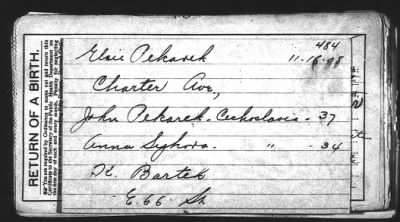 RETURN OF A BIRTH.
484
Elsie Pekarek 11-16-08
Charter Ave,
John Pekarek. Cechoslavia - 37
Anna Sykora. " - 34
K. Bartek
E. 66 St